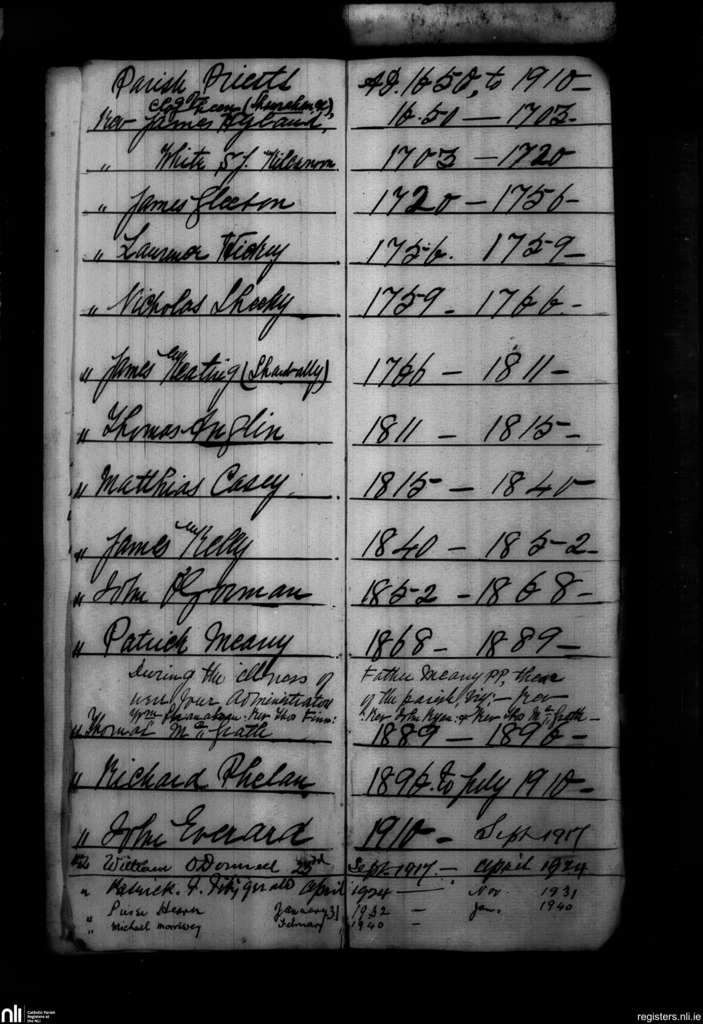 Parish Priests A.D. 1650, to 1910-
Clogheen (Shanrahan),
Rev James Hyland, 1650 - 1703-
" White S.J. 1703 - 1720
" James Gleeson 1720 - 1756-
" Laurence Hickey 1756. 1759-
" Nicholas Sheehy 1759 - 1766-
" James Keating (Shanbally) 1766 - 1811-
" Thomas Anglin 1811 - 1815-
" Matthias Casey. 1815 - 1840
" James Kelly 1840 - 1852-
" John O'Gorman 1852 - 1868-
" Patrick Meany 1868- 1889-
During the illness of Father Meany PP, there
were four Administrators of the parish, viz:- Rev
Wm Flannahan. Rev Thos Finn: Rev John Ryan & Rev Thos McGrath-
" Thomas McGrath 1889 - 1896-
" Richard Phelan 1896. to July 1910-
" John Everard 1910 - Sept 1917
" William O'Donnell 23rd Sept. 1917. - April 1924
" Patrick. J. Fitzgerald April 1924 - Nov. 1931
" Pierse January 31 1932 - Jan. 1940
" Michael Morrissey February 1940 -
nli Catholic Parish
Registers at
the NLI
registers.nli.ie